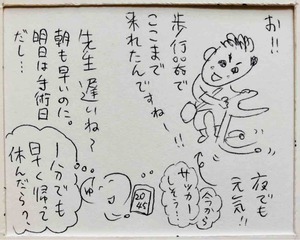 お!!
歩行器で
ここまで
来れたんですねー!!
夜でも
元気!!
今から
サッカー
しそう…
先生遅いね?
朝も早いのに。
明日は手術日
だし…
20
45
1分でも
早く帰って
休んだら?